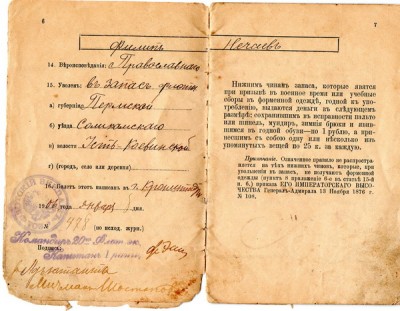 6
Филипъ Нечаевъ
14. Вѣроисповѣданія: Православнаго
15. Уволенъ: въ запасъ флота
а) губерніи: Пермской
б) уѣзда: Соликамскаго
в) волости:
г) (городъ, село или деревня)
16. Билетъ этотъ выданъ въ г. Кронштадтѣ
января дня.
№ (по исход. журн.).
Командиръ 20го Флот. эк.
Капитанъ 1 ранга,
Подпись:
Мичманъ
7
Нижнимъ чинамъ запаса, которые явятся
при призывѣ въ военное время или учебные
сборы въ форменной одеждѣ, годной къ упо-
требленію, выдаются деньги въ слѣдующемъ
размѣрѣ: сохранившимъ въ исправности пальто
или шинель, мундиръ, зимнія брюки и явив-
шимся въ годной обуви—по 1 рублю, а принес-
шимъ съ собою одну или нѣсколько изъ
упомянутыхъ вещей по 25 к. за каждую.
Примѣчаніе. Означенное правило не распростра-
няется на тѣхъ нижнихъ чиновъ, которые, при
увольненіи въ запасъ, не получаютъ форменной
одежды (пунктъ 8 приложенія 6-е къ статьѣ 15-й
п. 6.) приказа ЕГО ИМПЕРАТОРСКАГО ВЫСО-
ЧЕСТВА Генералъ-Адмирала 13 Ноября 1876 г.
№ 108.